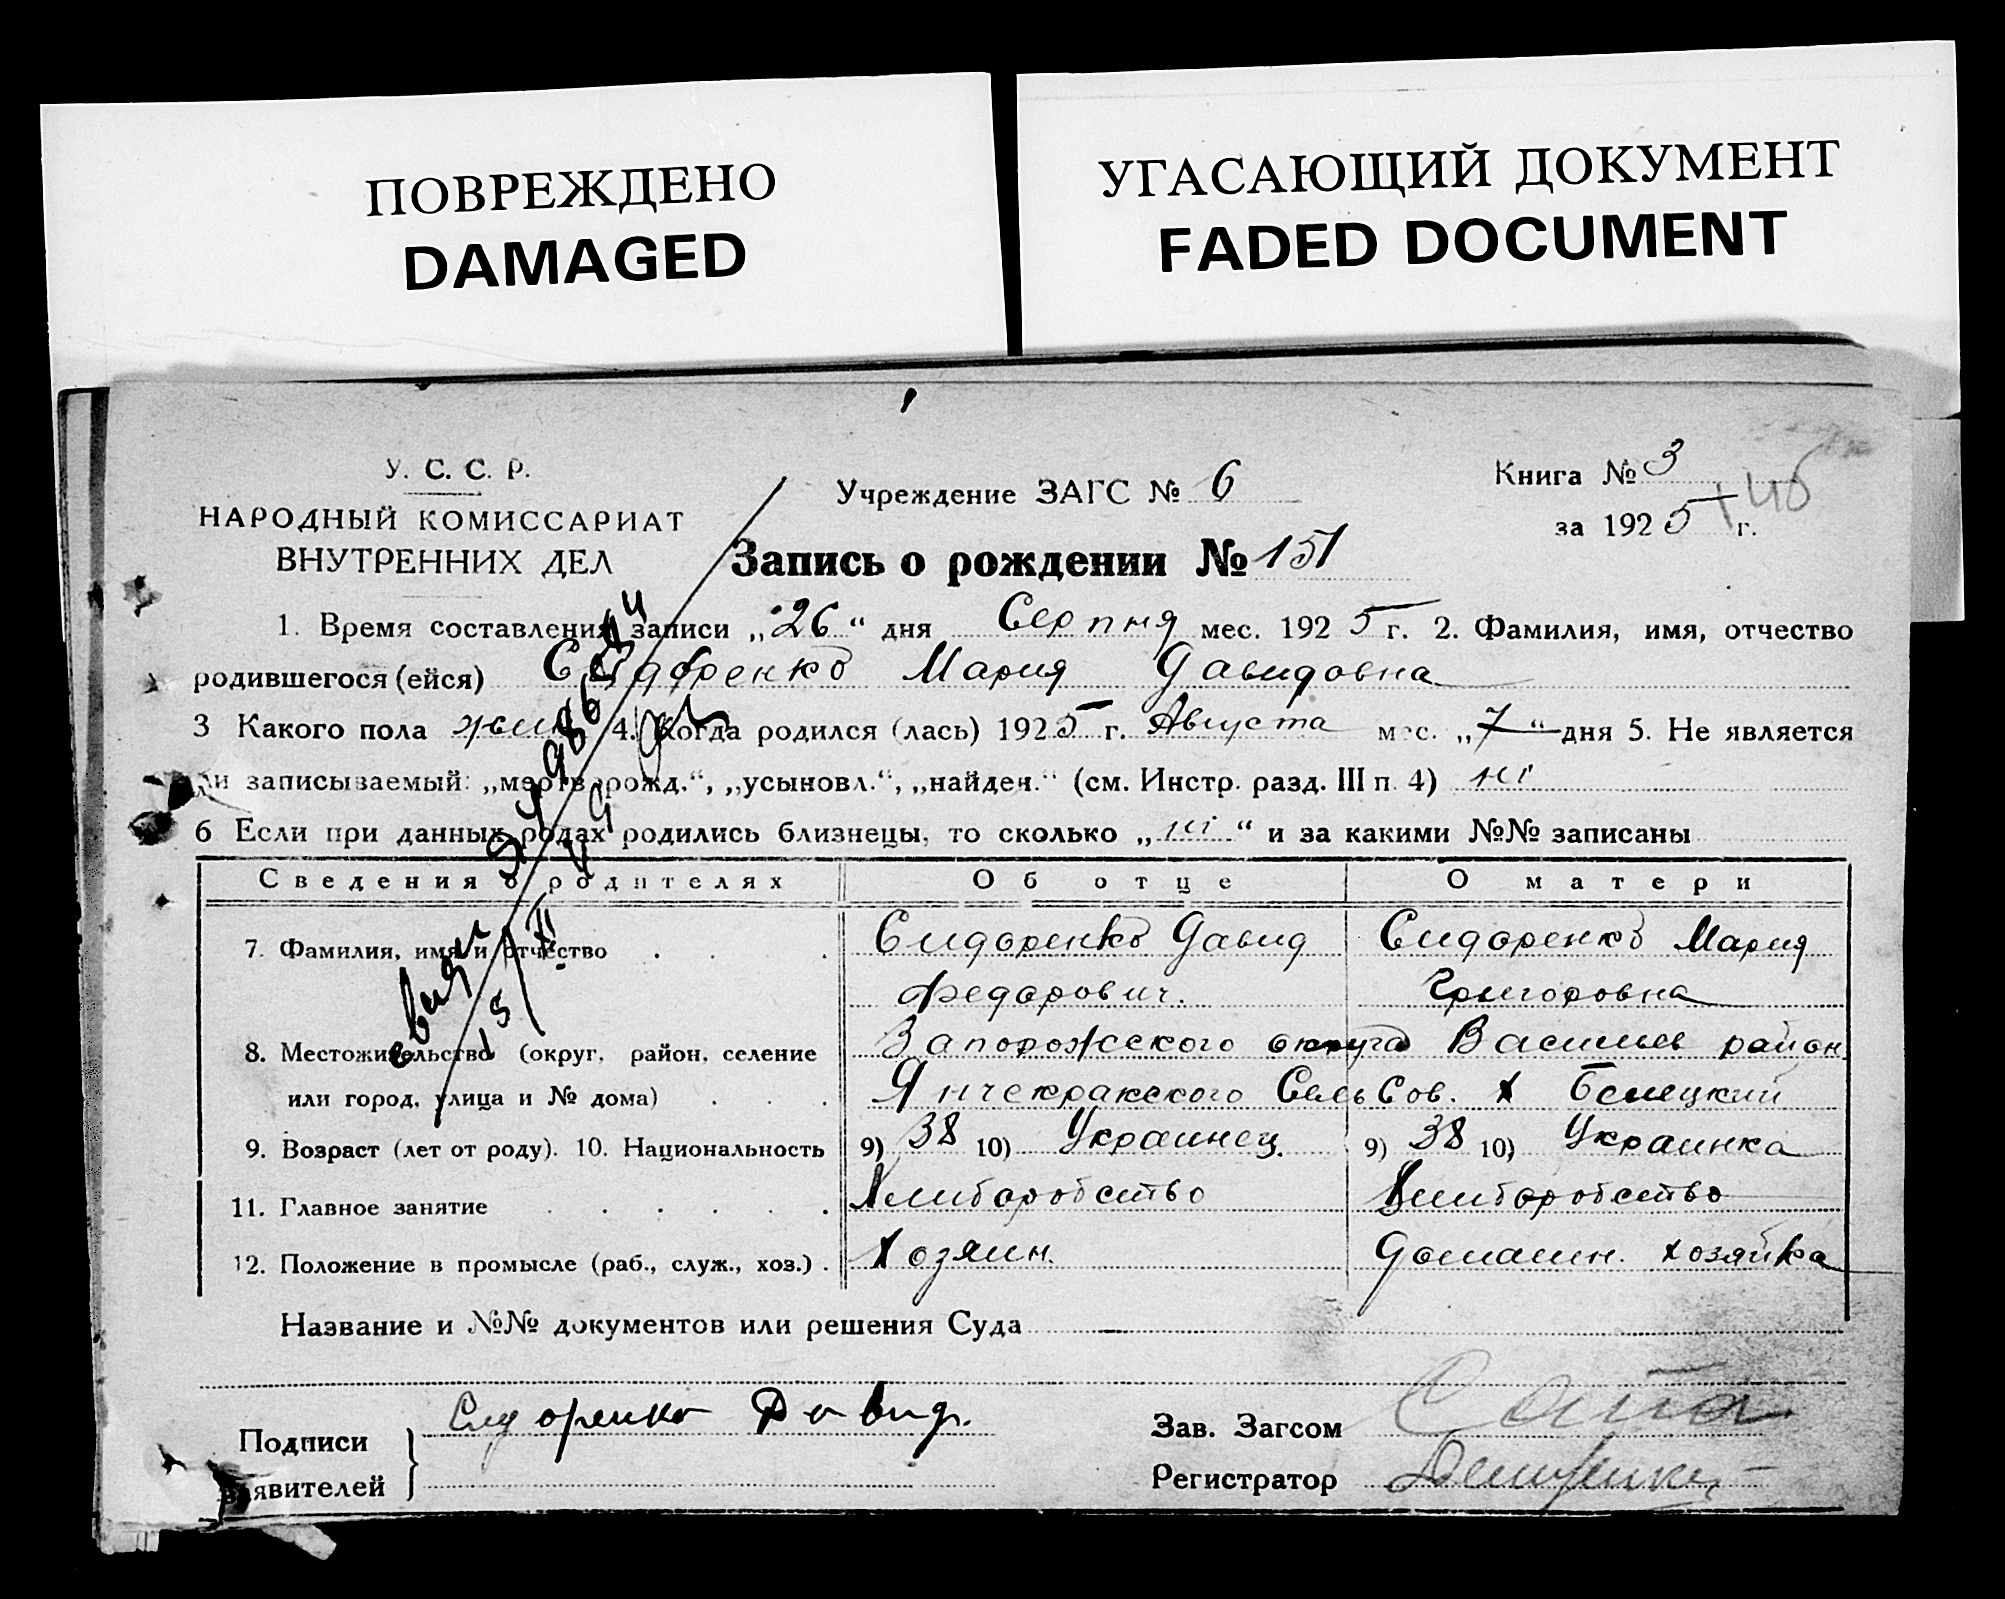 ПОВРЕЖДЕНО
DAMAGED
УГАСАЮЩИЙ ДОКУМЕНТ
FADED DOCUMENT
У. С. С. Р.
НАРОДНЫЙ КОМИССАРИАТ
ВНУТРЕННИХ ДЕЛ
Учреждение ЗАГС № 6
Книга № 3
за 1925 г.
Запись о рождении № 151
1. Время составления записи „26“ дня Серпня мес. 1925 г. 2. Фамилия, имя, отчество
родившегося (ейся) Сидоренко Мария Давидовна
3 Какого пола жен 4. Когда родился (лась) 1925 г. Августа мес. „7“ дня 5. Не является
ли записываемый: „мертворожд.“, „усыновл.“, „найден.“ (см. Инстр. разд. III п. 4) ні
6 Если при данных родах родились близнецы, то сколько „ні“ и за какими №№ записаны
Сведения о родителях Об отце О матери
7. Фамилия, имя и отчество . . . Сидоренко Давид Сидоренко Мария
Федорович. Григоровна
8. Местожительство (округ, район, селение Запорожского округа Васильев район
или город, улица и № дома) . . . Янчекракского СельСов. х Белецкий
9. Возраст (лет от роду). 10. Национальность 9) 38 10) Украинец. 9) 38 10) Украинка
11. Главное занятие . . . . . . Хлиборобство Хлиборобство
12. Положение в промысле (раб., служ., хоз.) . Хозяин. Домашн. хозяйка
Название и №№ документов или решения Суда
Подписи
заявителей
Сидоренко Давид.
Зав. Загсом
Регистратор